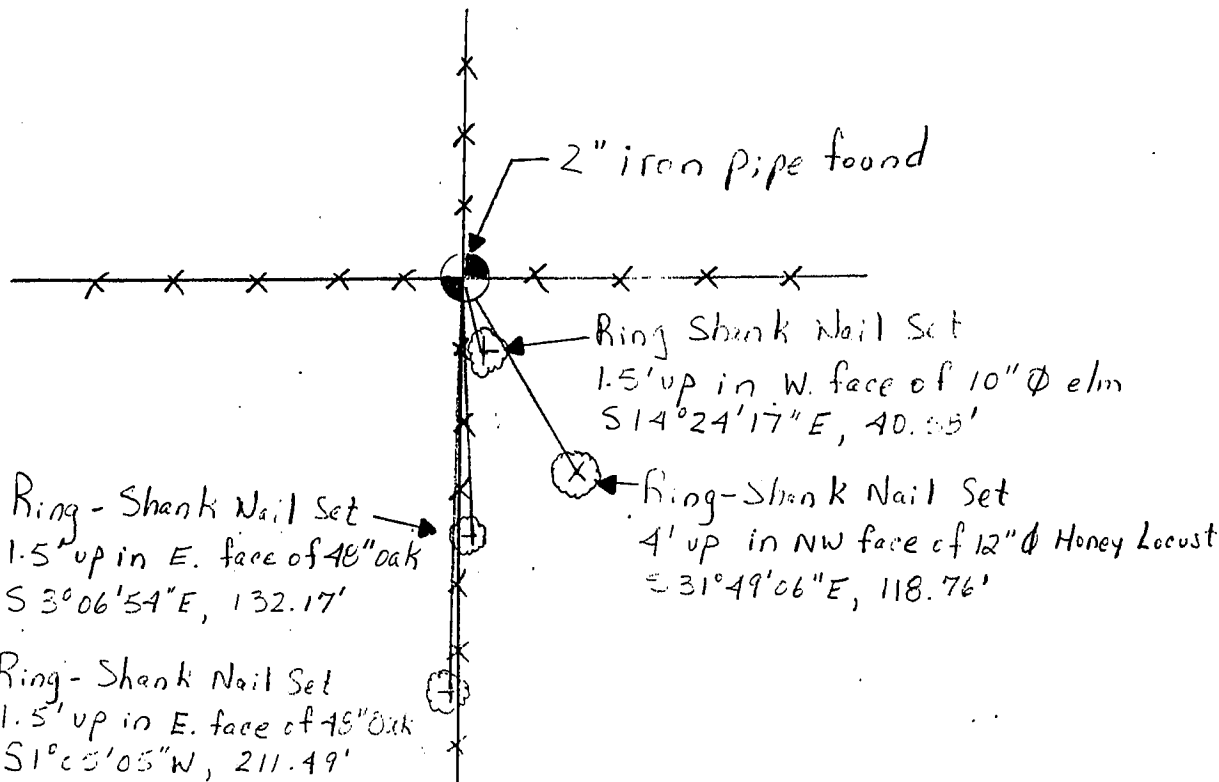 2" iron pipe found
Ring Shank Nail Set
1.5' up in W. face of 10" Ø elm
S 14°24'17" E,
Ring-Shank Nail Set
4' up in NW face of 12" Ø Honey Locust
31°49'06" E, 118.76'
Ring-Shank Nail Set
1.5' up in E. face of 48" Oak
S 3°06'54" E, 132.17'
Ring-Shank Nail Set
1.5' up in E. face of 48" Oak
211.49'